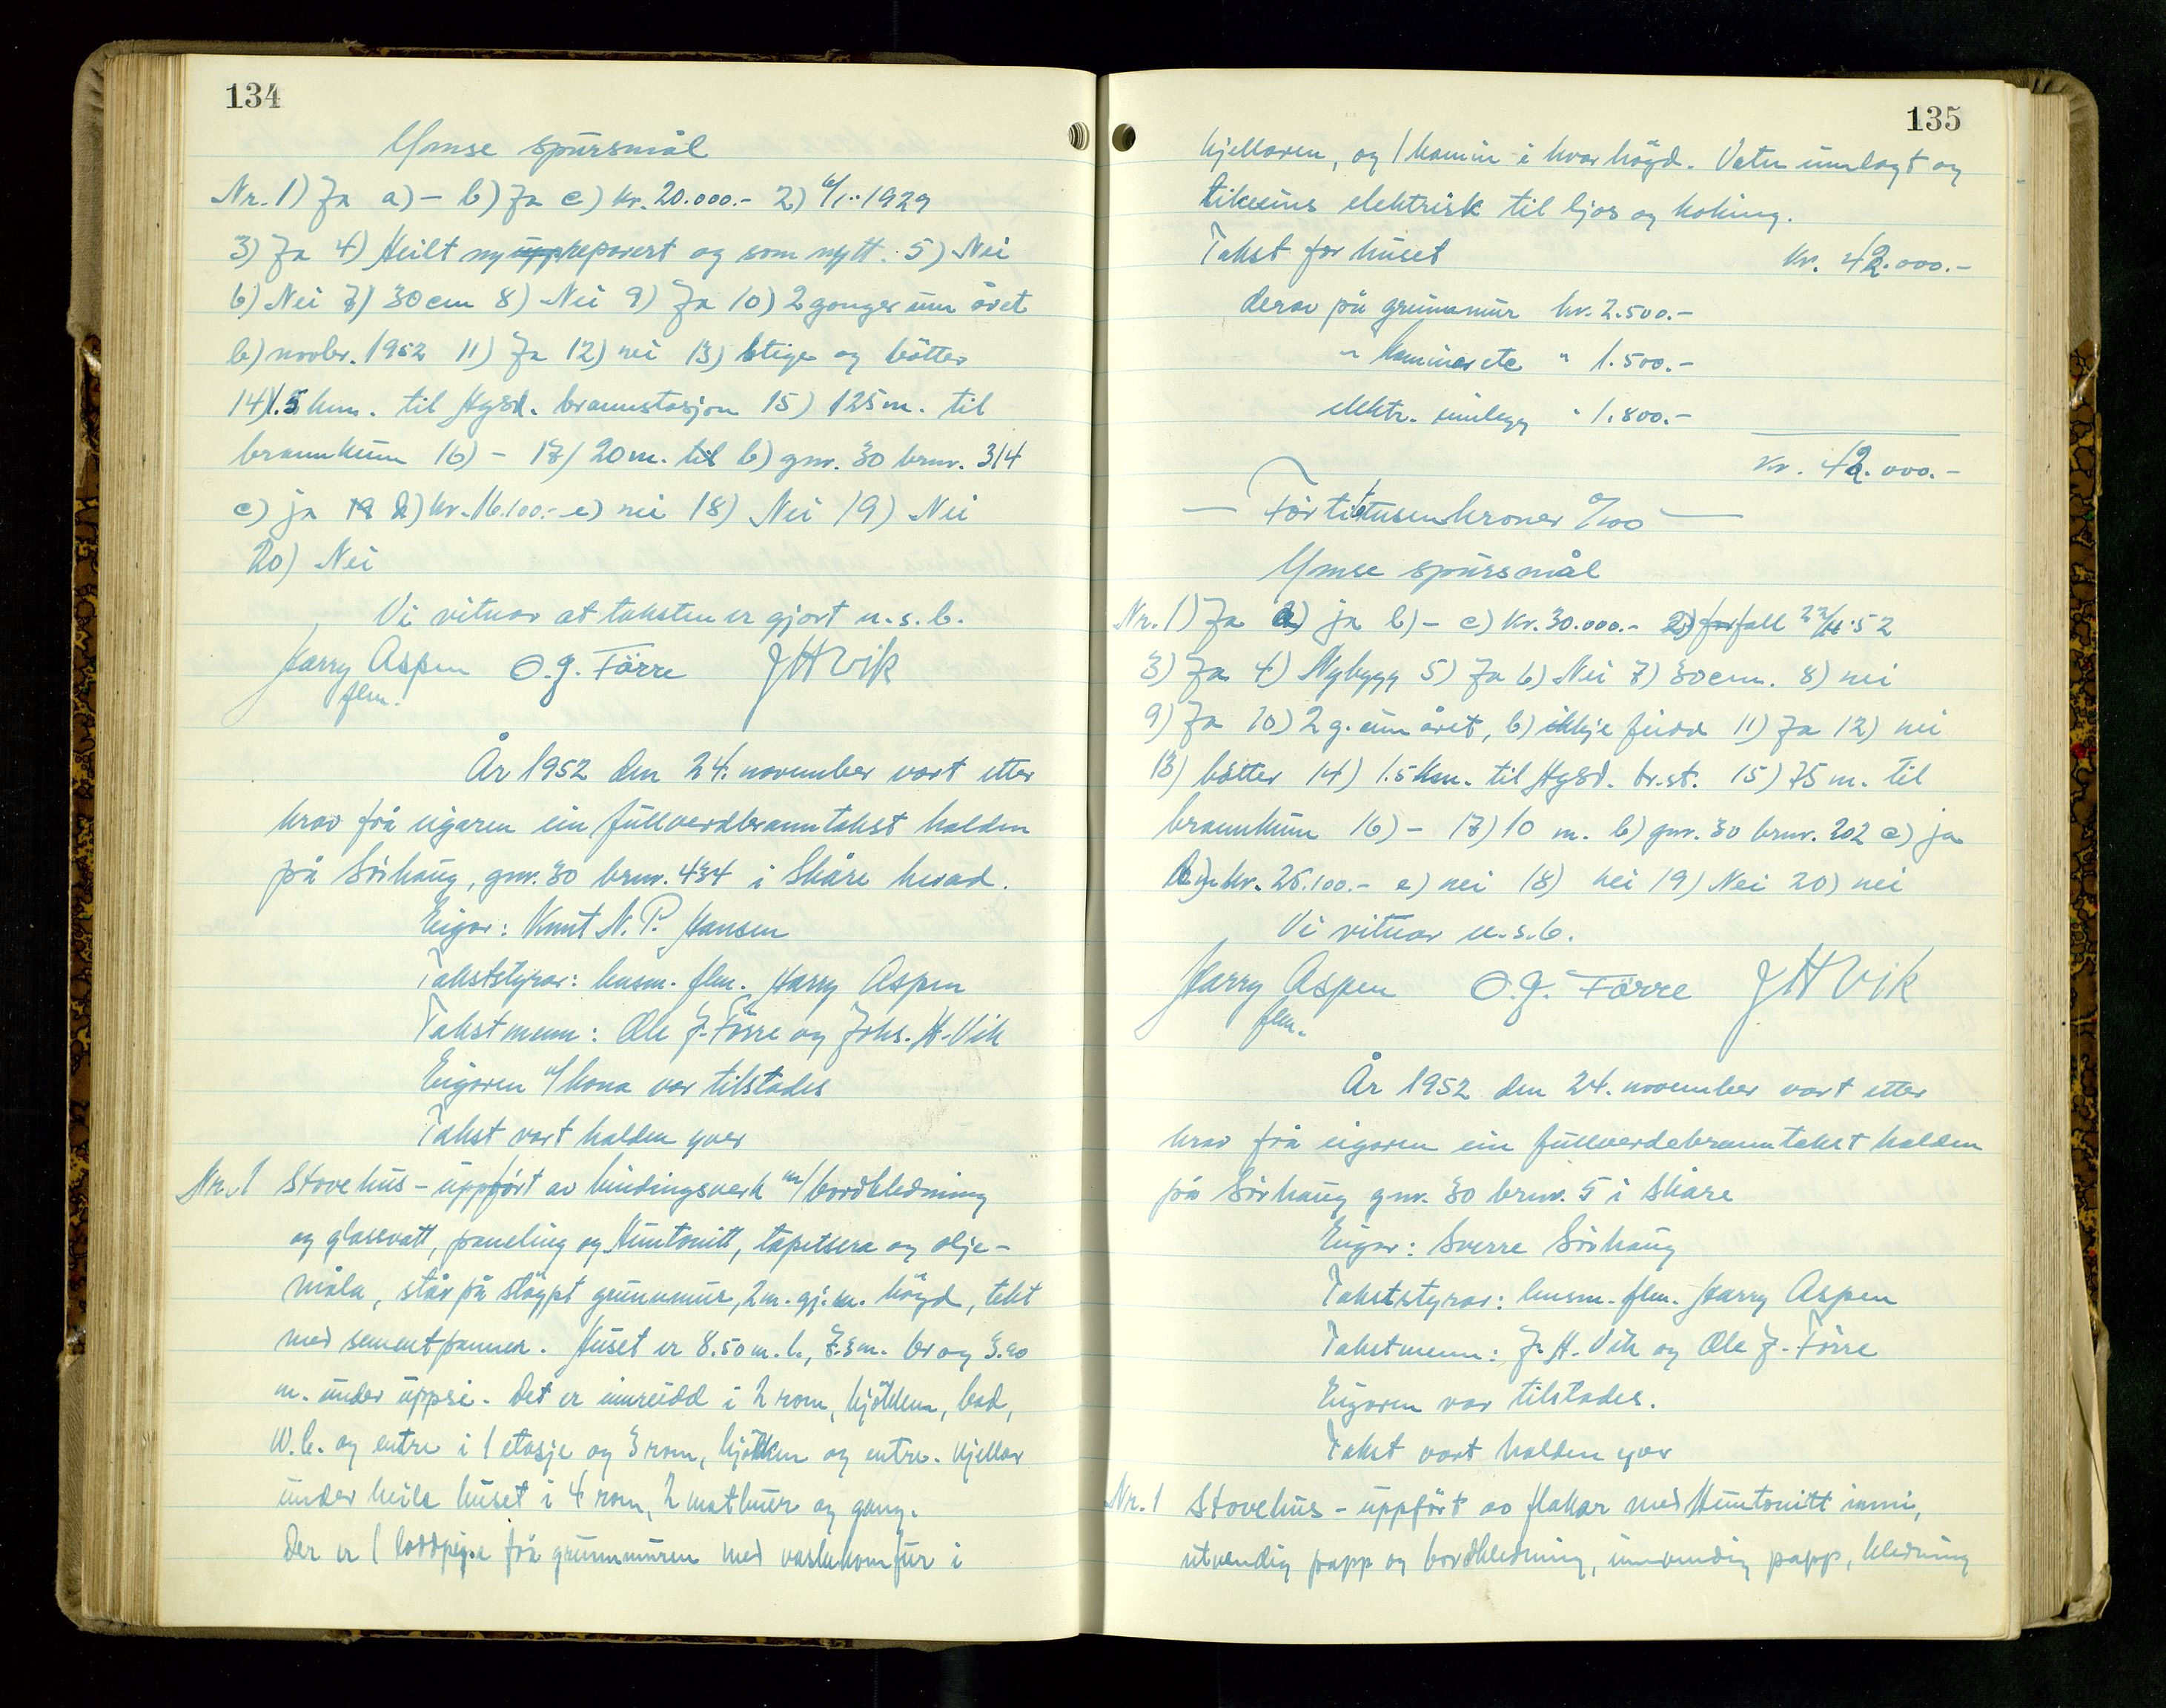 134
Ymse spursmål
Nr. 1) Ja a) - b) Ja c) kr. 20.000.- 2) 6/1.. 1929
3) Ja 4) Heilt ny uppreparert og som nytt. 5) Nei
6) Nei 7) 30 cm 8) Nei 9) Ja 10) 2 gonger um året
b) novbr. 1952 11) Ja 12) nei 13) stige og bötter
14) 1.5 km. til Hgsd. brannstasjon 15) 125 m. til
brannkum 16) - 17) 20 m. til b) gnr. 30 brnr. 314
c) ja d) kr. 16.100.- e) nei 18) Nei 19) Nei
20) Nei
Vi vitnar at taksten er gjort u.s.b.
Harry Aspen O. J. Förre J H Vik
flm.
År 1952 den 24. november vart etter
krav frå eigaren ein fullverdbranntakst halden
på Sörhaug, gnr. 30 brnr. 434 i Skåre herad.
Eigar: Knut N. P. Hansen
Takststyrar: lensm. flm. Harry Aspen
Takstmenn: Ole J. Förre og Johs. H. Vik
Eigaren v/ kona var tilstades
Takst vart halden yver
Nr. 1 Stovehus - uppfört av bindingsverk m/ bordkledning
og glassvatt, paneling og Huntonitt, tapetsera og olje-
måla, står på stöypt grunnmur, 2 m. gj. m. högd, tekt
med sementpanner. Huset er 8.50 m. l., 7.3 m. br og 3.90
m. under uppsi. Det er innreidd i 2 rom, kjökken, bad,
W.C. og entre i 1 etasje og 3 rom, kjökken og entre. Kjellar
under heile huset i 4 rom, 2 matbuer og gang.
Der er 1 loddpipe frå grunnmuren med vaskekomfur i
135
kjellaren, og 1 kamin i kvar högd. Vatn innlagt og
likeeins elektrisk til ljos og koking.
Takst for huset kr. 42.000.-
derav på grunnmur kr. 2.500.-
" kaminar etc " 1.500.-
elektr. innlegg " 1.800.-
kr. 42.000.-
- Förtitotusenkroner 0/00 -
Ymse spursmål
Nr. 1) Ja a) ja b) - c) kr. 30.000.- 2) forfall 22/11.52
3) Ja 4) Nybygg 5) Ja 6) Nei 7) 30 cm. 8) nei
9) Ja 10) 2 g. um året, b) ikkje feidd 11) Ja 12) nei
13) bötter 14) 1.5 km. til Hgsd. br.st. 15) 75 m. til
brannkum 16) - 17) 10 m. b) gnr. 30 brnr. 202 c) ja
d) kr. 26.100.- e) nei 18) nei 19) Nei 20) nei
Vi vitnar u.s.b.
Harry Aspen O. J. Förre J H Vik
flm.
År 1952 den 24. november vart etter
krav frå eigaren ein fullverdebranntakst halden
på Sörhaug gnr. 30 brnr. 5 i Skåre
Eigar: Sverre Sörhaug
Takststyrar: lensm. flm. Harry Aspen
Takstmenn: J. H. Vik og Ole J. Förre
Eigaren var tilstades.
Takst vart halden yver
Nr. 1 Stovehus - uppfört av flakar med Huntonitt inni,
utvendig papp og bordkledning, innvendig papp, kledning